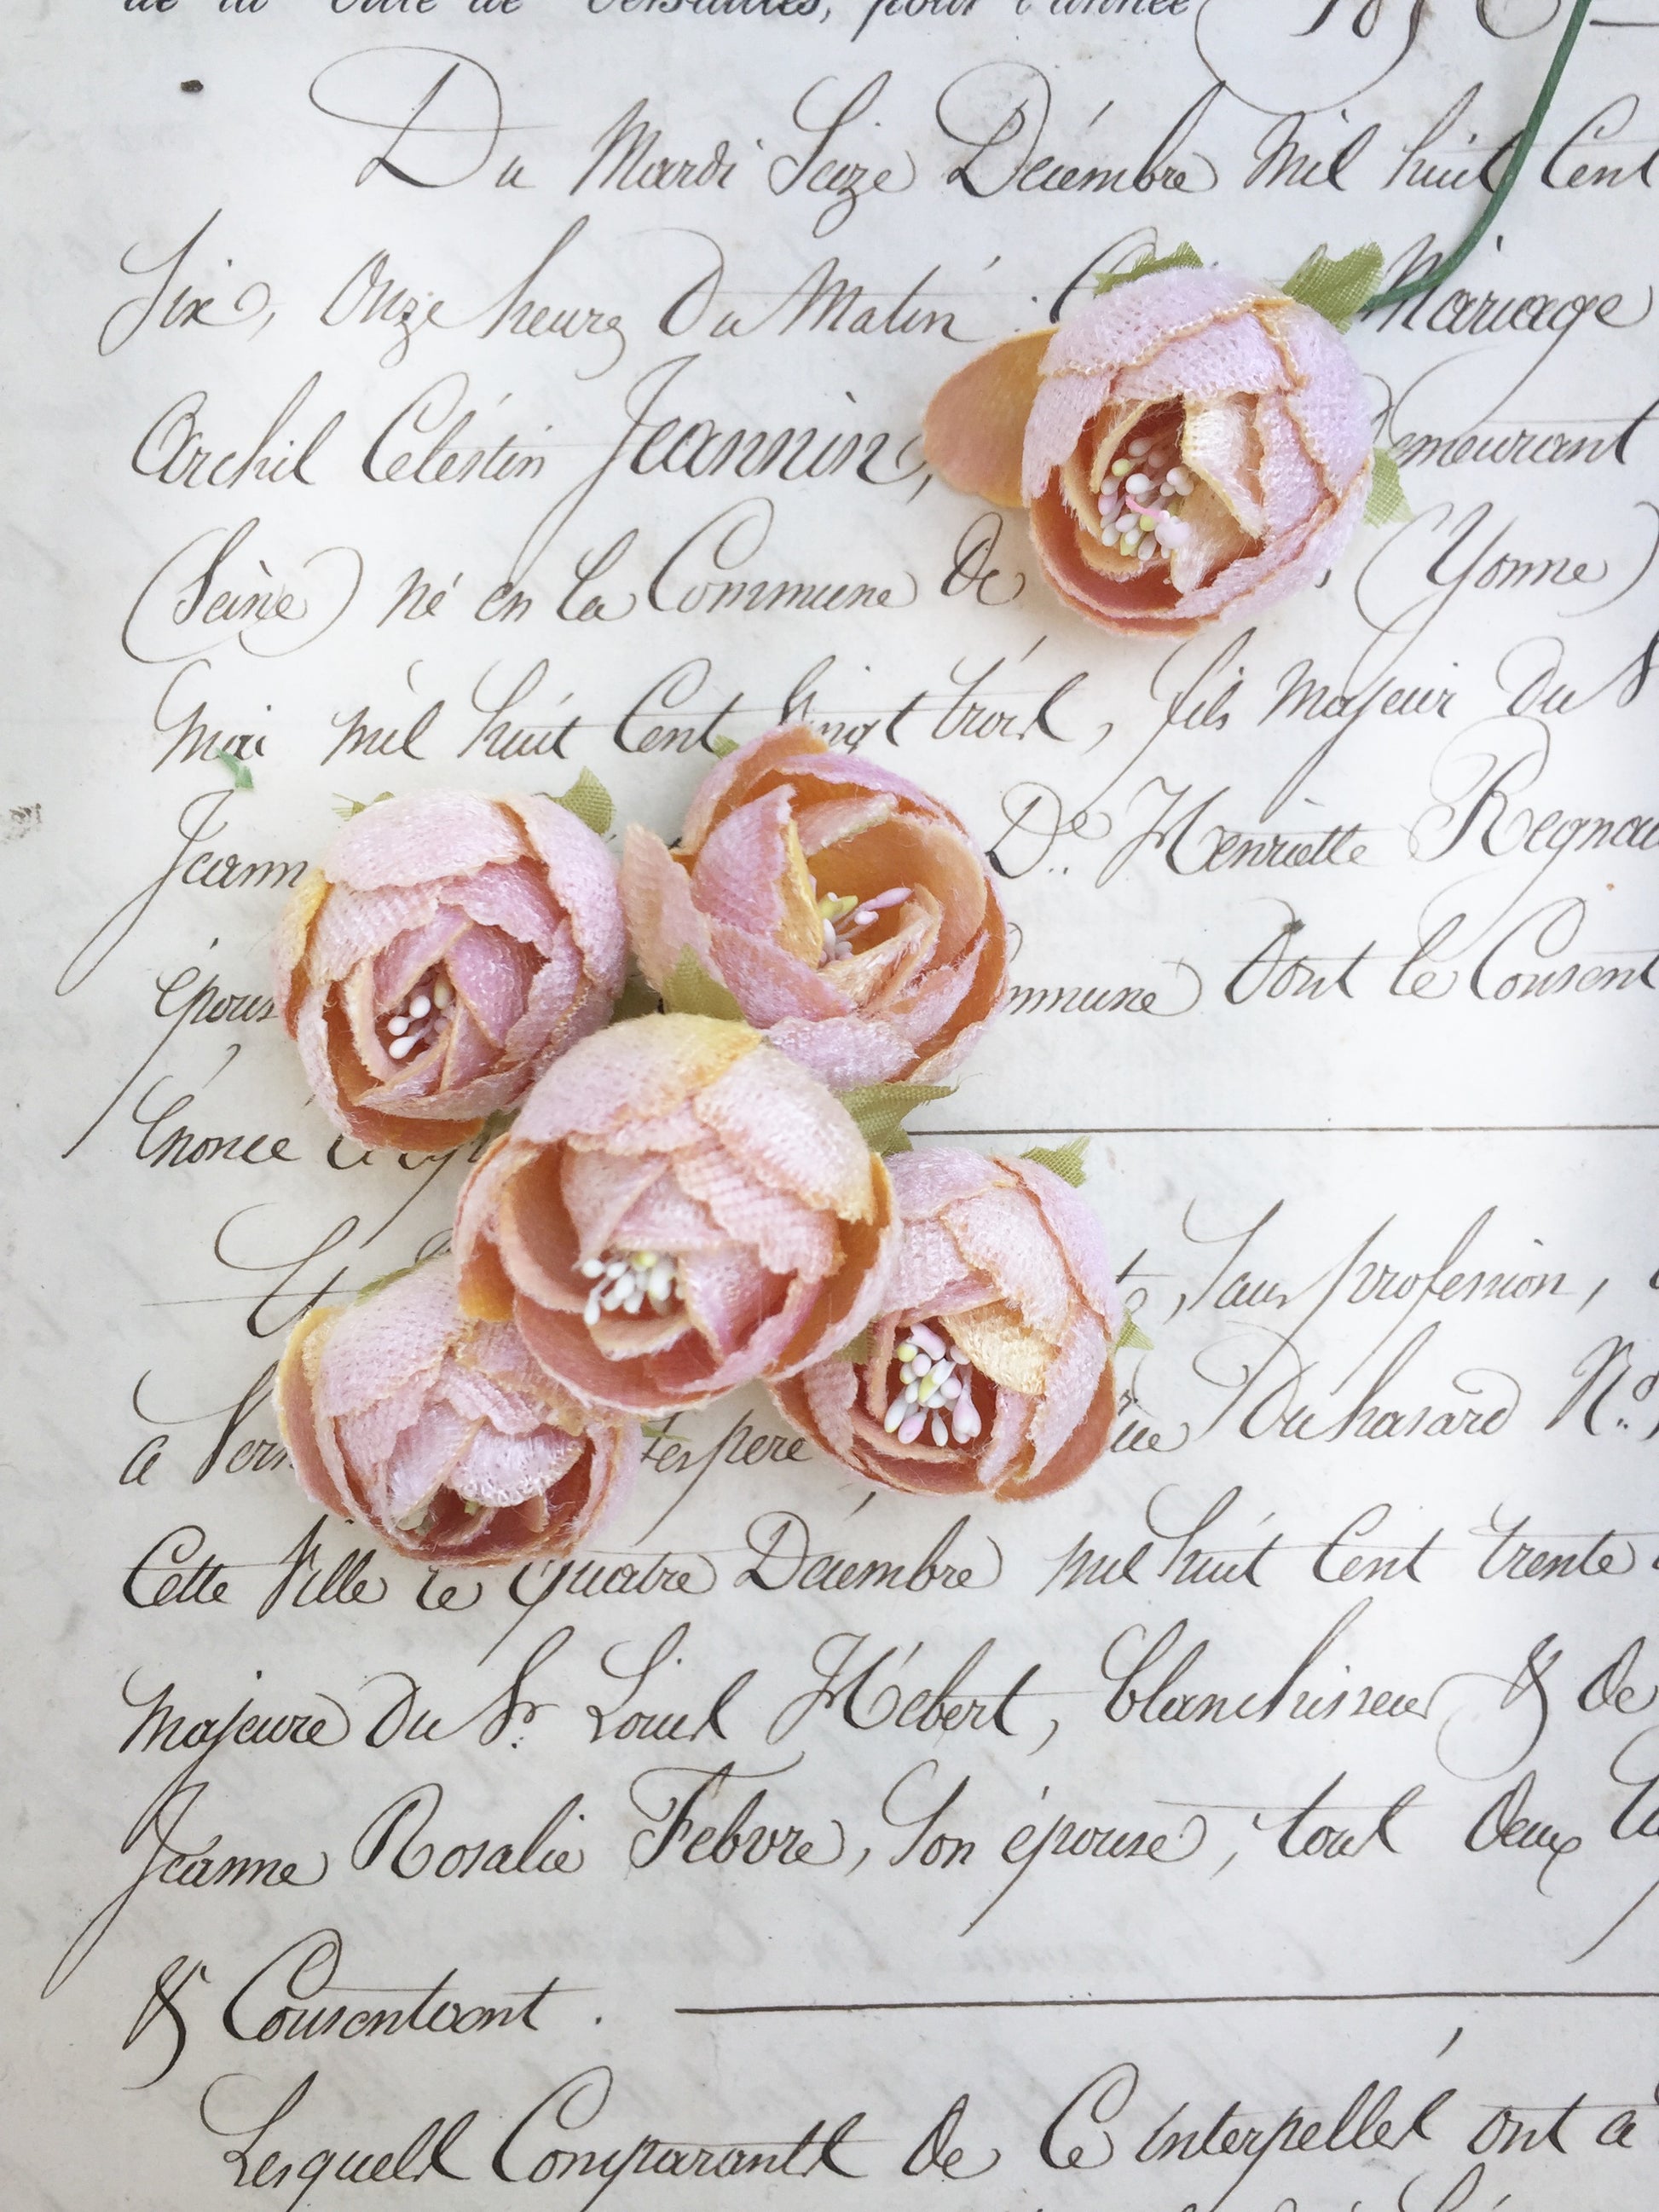 de la Ville de Versailles, pour l'année 185
Du Mardi Seize Décembre Mil huit Cent
Six, Onze heures Du Matin : Mariage
Archil Célestin Jeannin, Demeurant
(Seine) né en la Commune De , (Yonne)
Mai mil huit Cent Vingt trois, fils majeur Du S
Jeann De. Henriette Regnau
épous mmune Dont le Consent
Enoncé
Et , Sans profession,
a Vers Duhasard No.
Cette Ville le Quatre Décembre mil huit Cent trente
majeure Du Sr. Louis Hébert, blanchisseur & De
Jeanne Rosalie Febvre, Son épouse, tous Deux
& Consentant .
Lesquels Comparants De Ce interpellés ont a